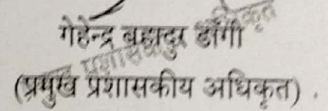 गेहेन्द्र बहादुर डाँगी
(प्रमुख प्रशासकीय अधिकृत)